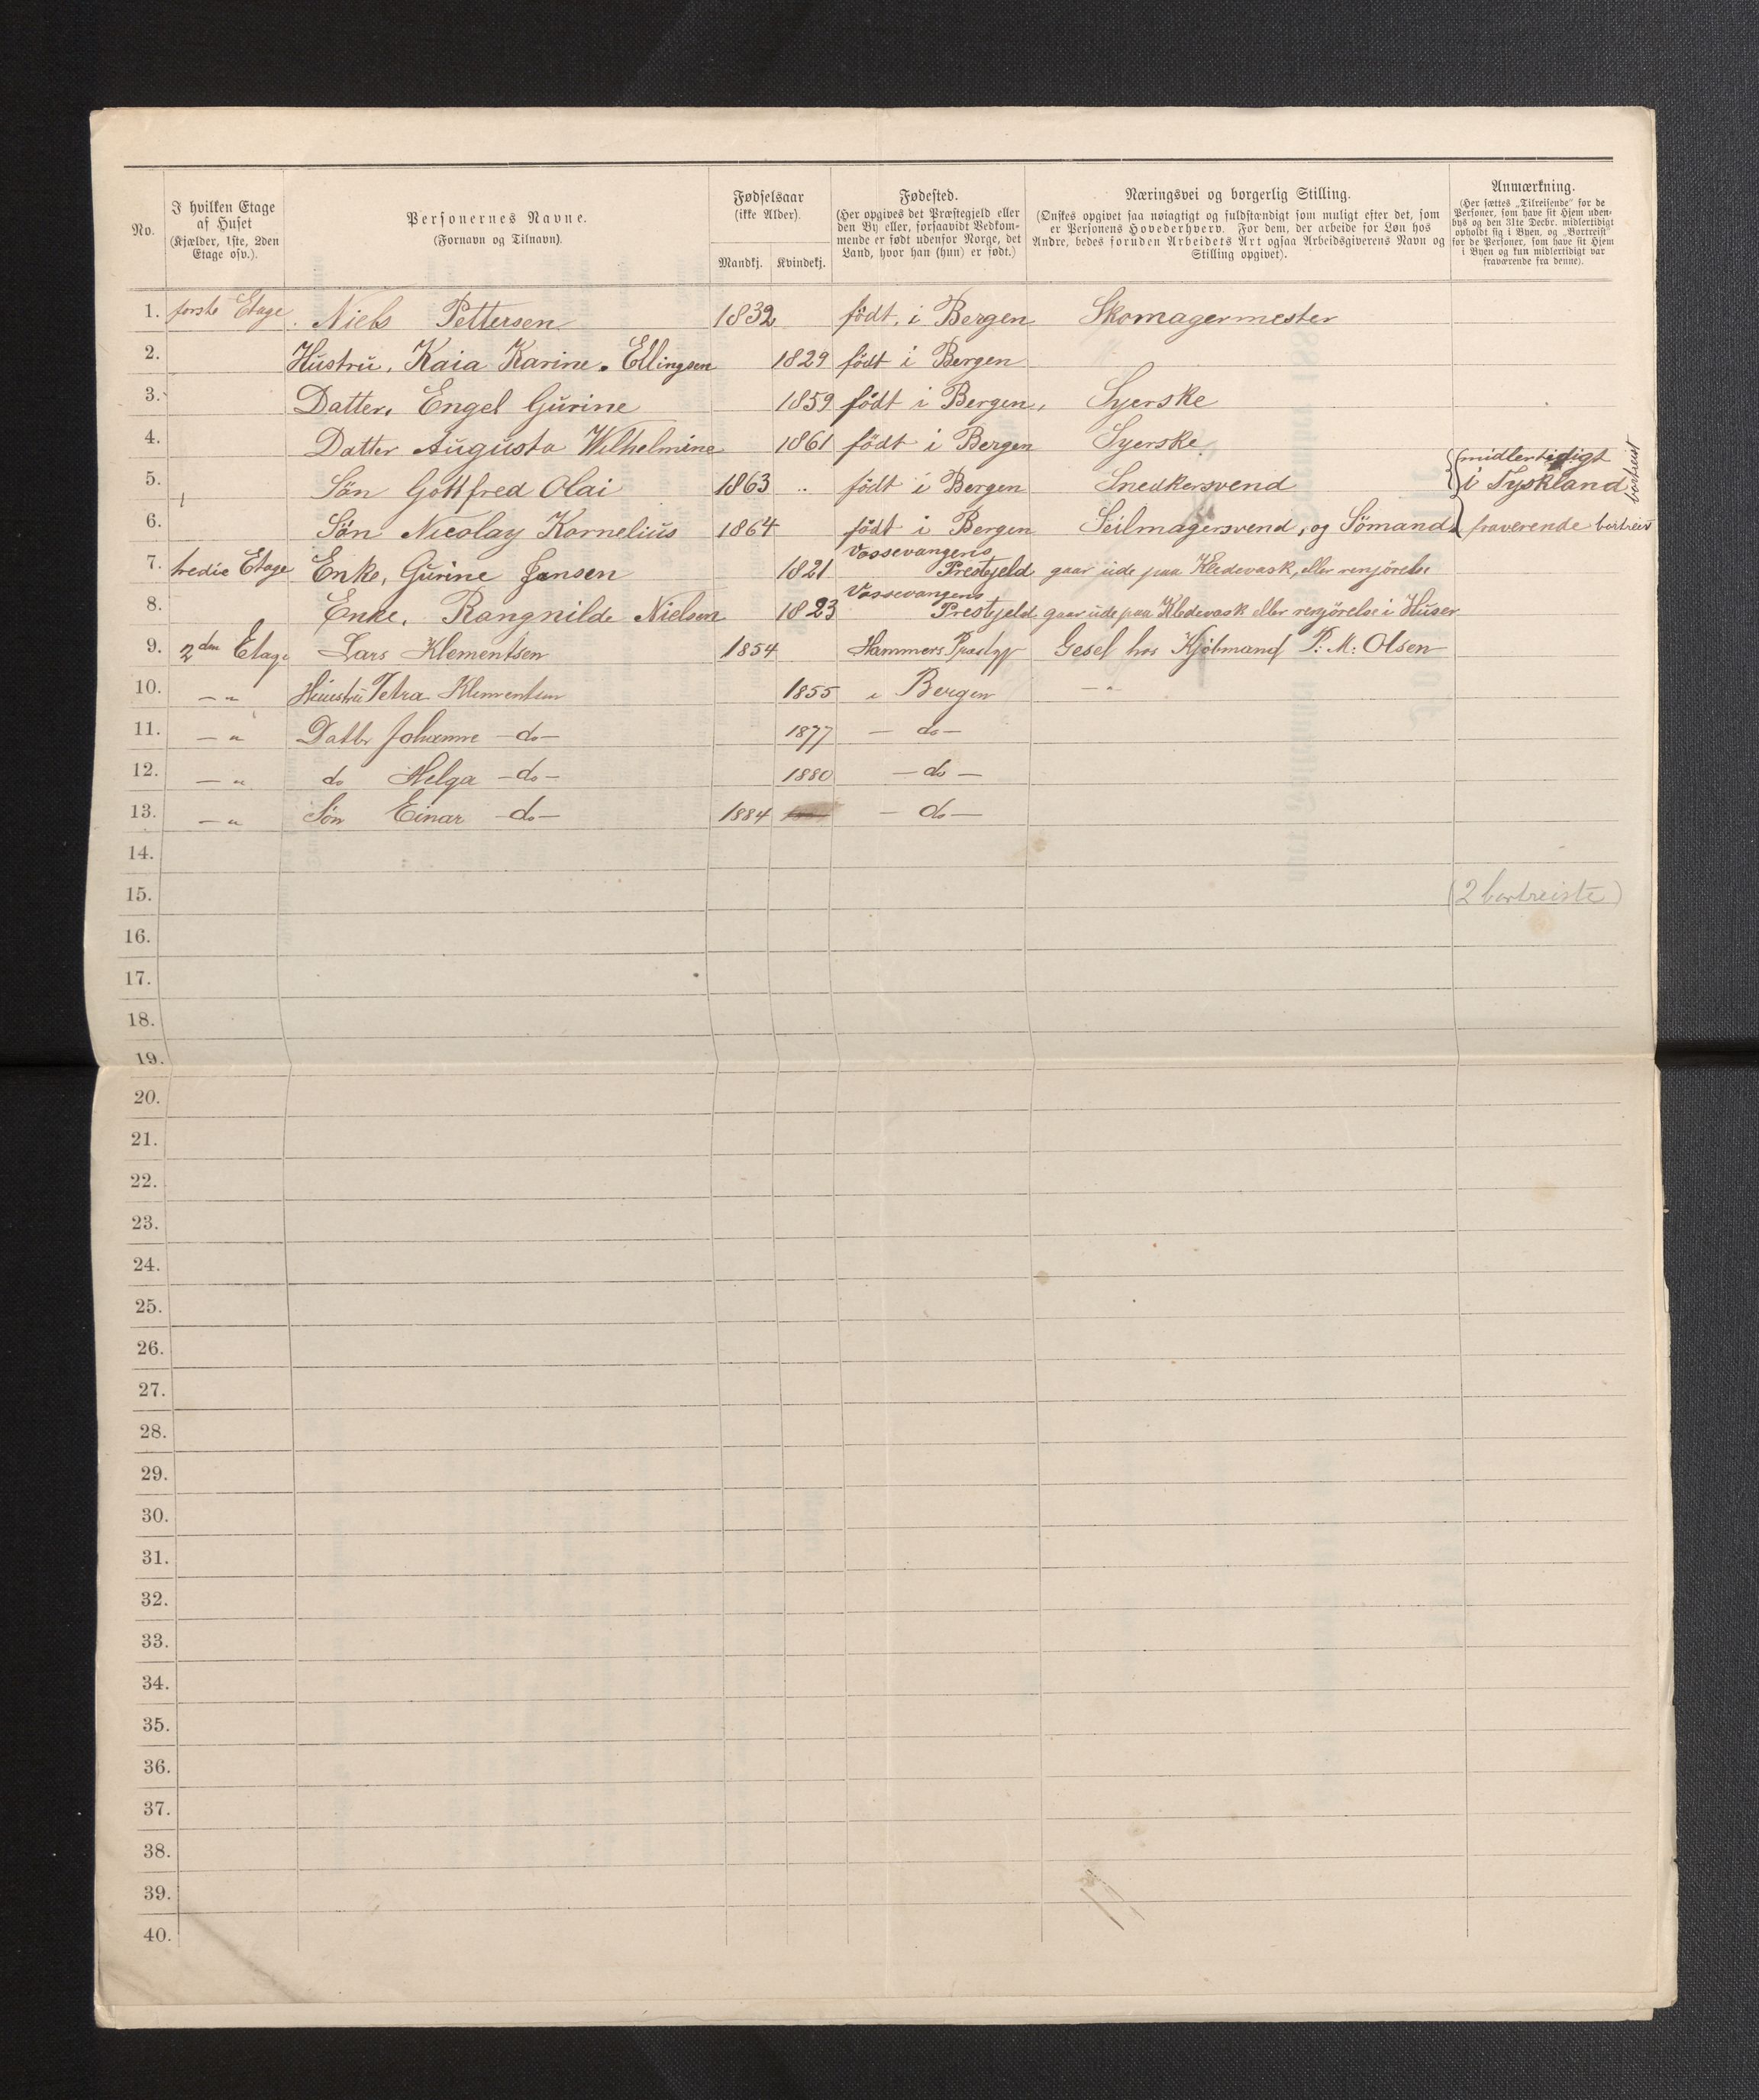 No.
I hvilken Etage
af Huset
(Kjælder, 1ste, 2den
Etage osv.).
Personernes Navne.
(Fornavn og Tilnavn).
Fødselsaar
(ikke Alder).
Mandkj. Kvindekj.
Fødested.
(Her opgives det Præstegjeld eller
den By eller, forsaavidt Vedkom-
mende er født udenfor Norge, det
Land, hvor han (hun) er født.)
Næringsvei og borgerlig Stilling.
(Ønskes opgivet saa nøiagtigt og fuldstændigt som muligt efter det, som
er Personens Hovederhverv. For dem, der arbeide for Løn hos
Andre, bedes foruden Arbeidets Art ogsaa Arbeidsgiverens Navn og
Stilling opgivet).
Anmærkning.
(Her sættes „Tilreisende“ for de
Personer, som have sit Hjem uden-
bys og den 31te Decbr. midlertidigt
opholdt sig i Byen, og „Bortreist“
for de Personer, som have sit Hjem
i Byen og kun midlertidigt var
fraværende fra denne).
1. første Etage. Niels Pettersen 1832 födt, i Bergen Skomagermester
2. Hustrü, Kaia Karine. Ellingsen 1829 födt i Bergen
3. Datter, Engel Gürine 1859 födt i Bergen, Syerske
4. Datter Aügüsta Wilhelmine 1861 födt i Bergen Syerske
5. Sön Gottfred Olai 1863 „ födt i Bergen Snedkersvend midlertidigt i Tyskland bortreist
6. Sön Nicolay Kornelius 1864 födt i Bergen Seilmagersvend, og Sömand fraverende bortreist
7. tredie Etage Enke, Gürine Jansen 1821 Vossevangens Prestejeld gaar üde paa Kledevask, eller renjörelse
8. Enke, Rangnilde Nielsen 1823 Vossevangens Prestejeld gaar üde paa Kledevask eller renjörelse i Hüser
9. 2den Etage Lars Klementsen 1854 Hammers Gesel hos Kjöbmand P: M: Olsen
10. — „ Huustrü Petra Klementsen 1855 i Bergen — „
11. — „ Dattr Johanne — do — 1877 — do —
12. — „ do Helga — do — 1880 — do —
13. — „ Sön Einar — do — 1884 — do —
14.
15. (2 bortreiste)
16.
17.
18.
19.
20.
21.
22.
23.
24.
25.
26.
27.
28.
29.
30.
31.
32.
33.
34.
35.
36.
37.
38.
39.
40.